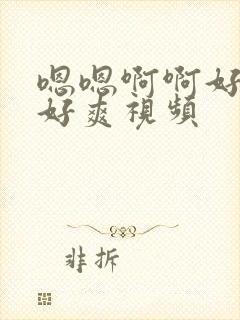 嗯嗯啊啊好
好爽視頻
非拆